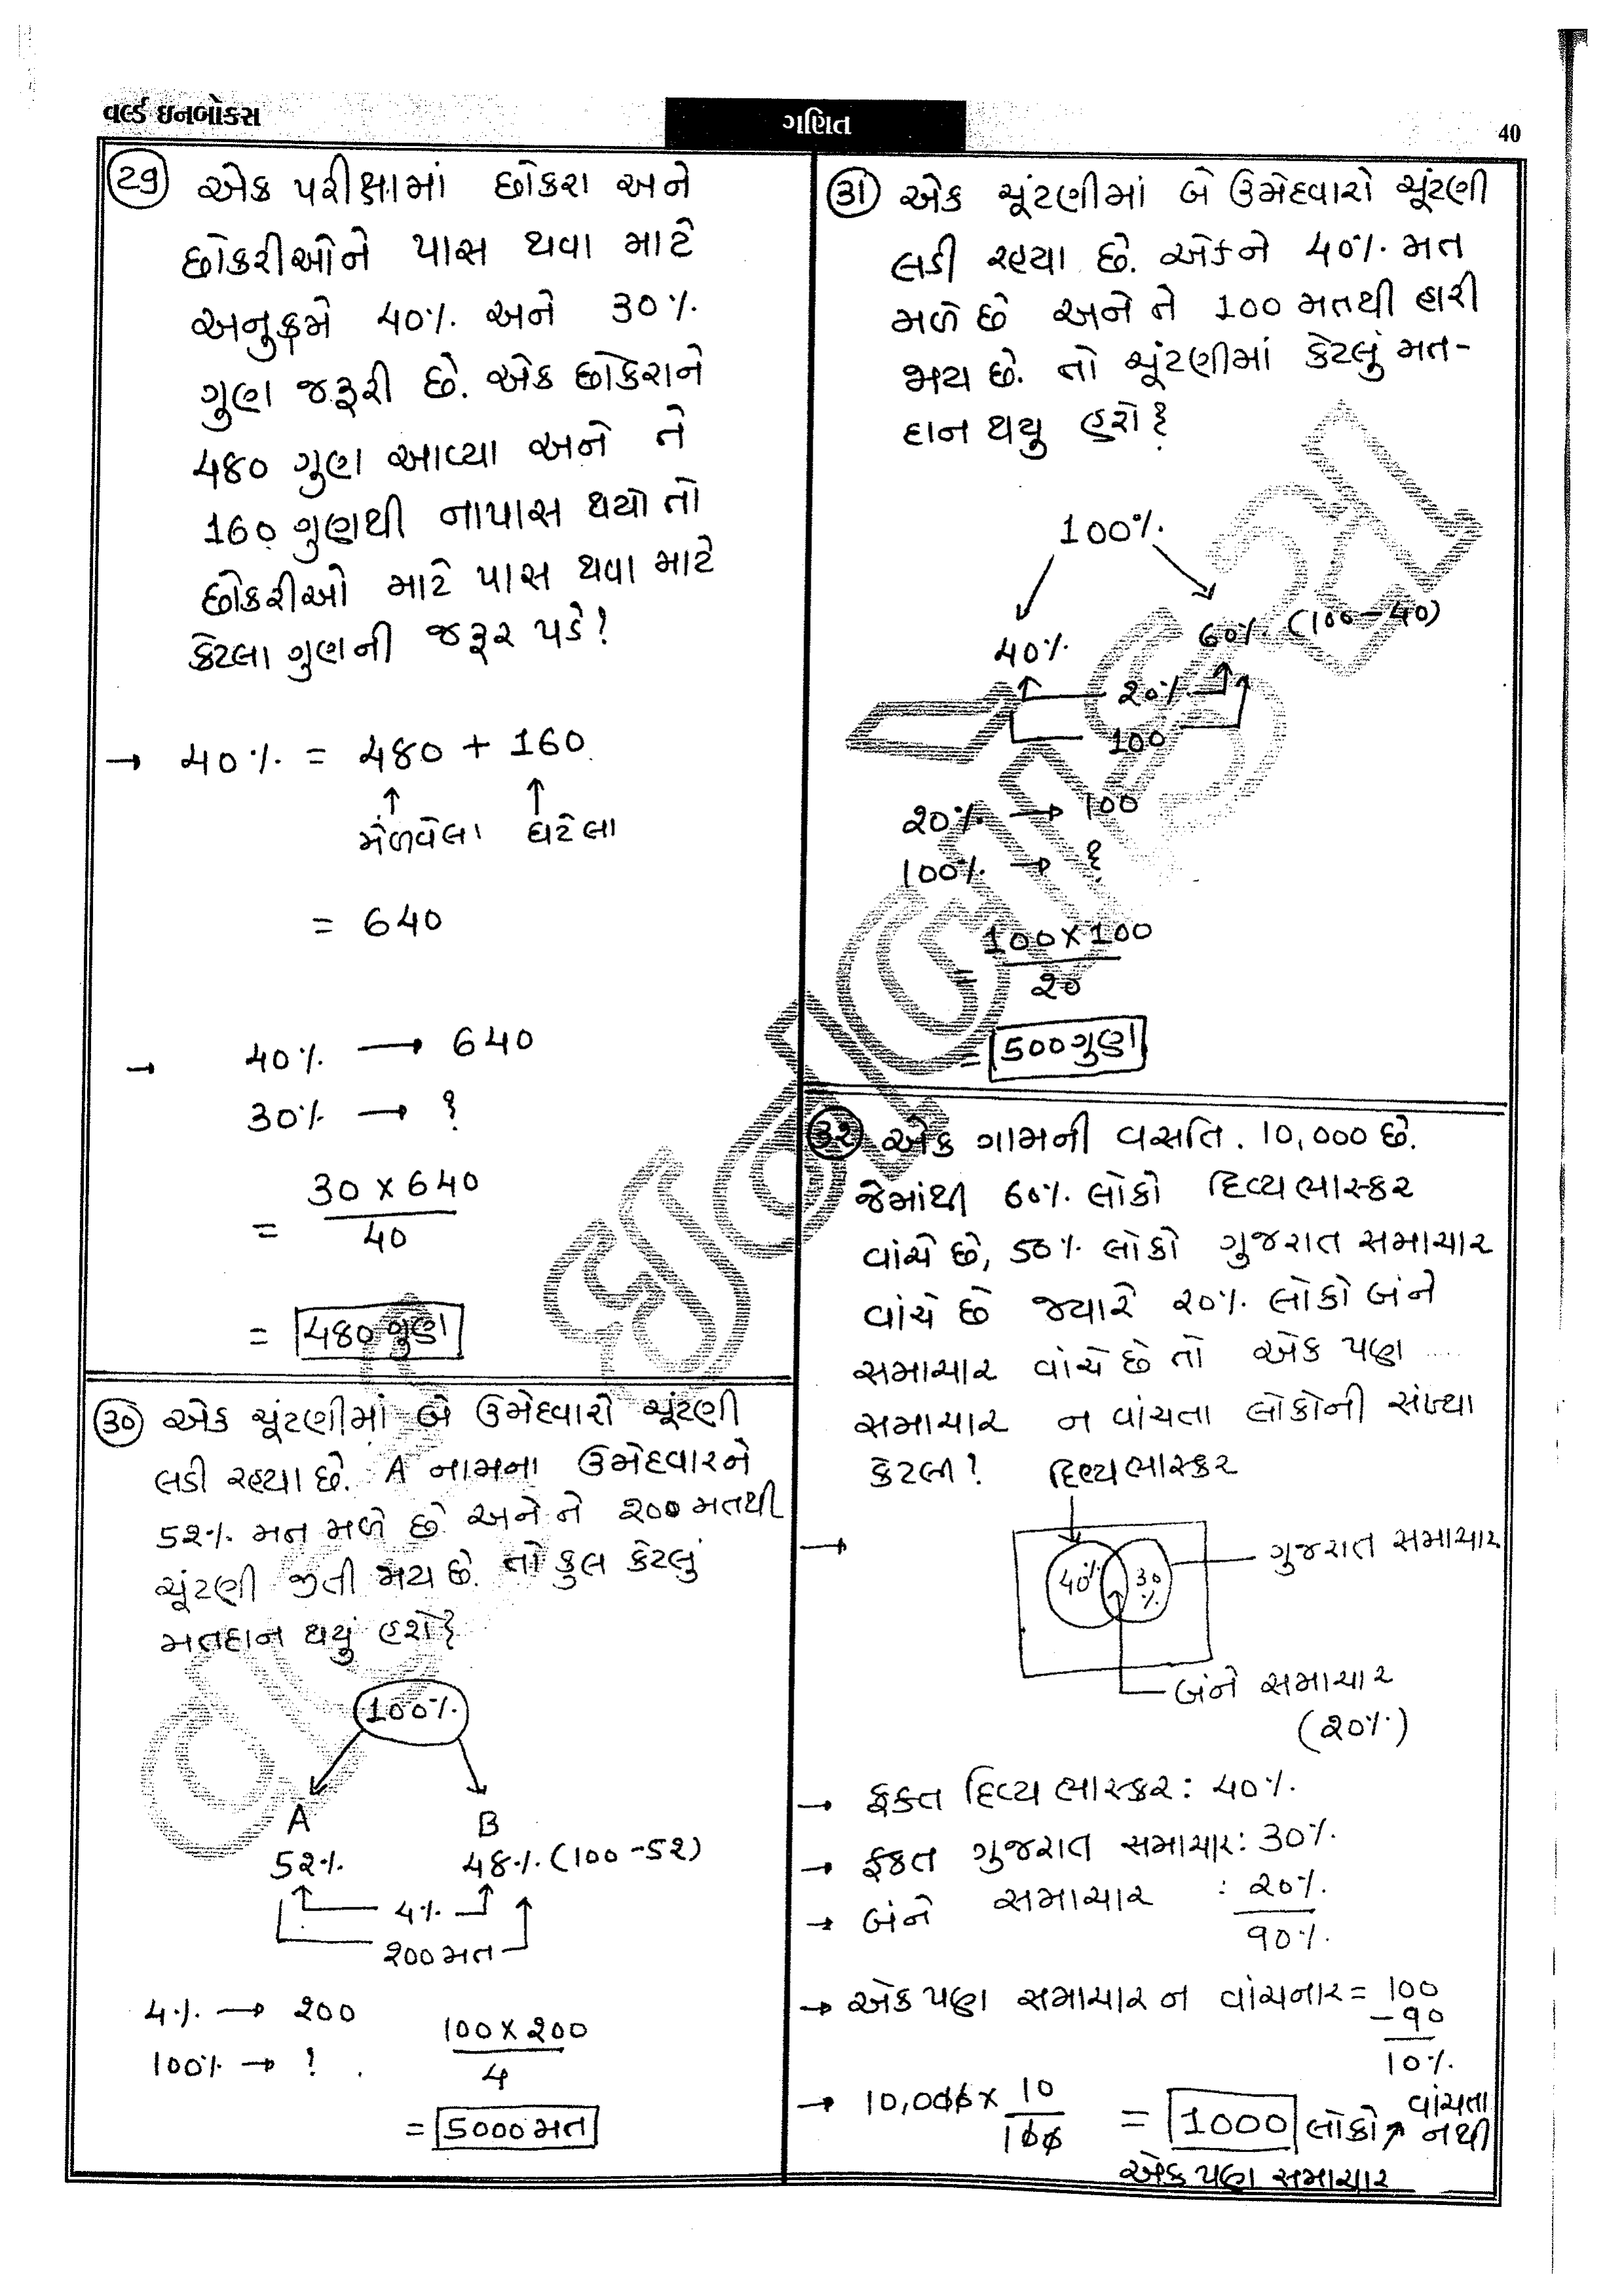 વર્લ્ડ ઇનબોક્સ
ગણિત
40
29 એક પરીક્ષામાં છોકરા અને
છોકરીઓને પાસ થવા માટે
અનુક્રમે 40% અને 30%
ગુણ જરૂરી છે. એક છોકરાને
480 ગુણ આવ્યા અને તે
160 ગુણથી નાપાસ થયો તો
છોકરીઓ માટે પાસ થવા માટે
કેટલા ગુણની જરૂર પડે?
→ 40% = 480 + 160
↑ ↑
મેળવેલા ઘટેલા
= 640
→ 40% → 640
30% → ?
30 × 640
= 40
= 480 ગુણ
૩૦ એક ચૂંટણીમાં બે ઉમેદવારો ચૂંટણી
લડી રહ્યા છે. A નામના ઉમેદવારને
5૨% મત મળે છે અને તે ૨00 મતથી
ચૂંટણી જીતી જાય છે. તો કુલ કેટલું
મતદાન થયું હશે?
100%
A B
5૨% 48% (100-5૨)
4%
૨00 મત
4% → ૨00
100% → ?
100 × ૨00
4
= 5000 મત
૩૧ એક ચૂંટણીમાં બે ઉમેદવારો ચૂંટણી
લડી રહ્યા છે. એકને 40% મત
મળે છે અને તે 100 મતથી હારી
જાય છે. તો ચૂંટણીમાં કેટલું મત-
દાન થયુ હશે?
100%
40% 60% (100-40)
૨0%
100
૨0% → 100
100% → ?
100 × 100
= ૨0
= 500 ગુણ
૩૨ એક ગામની વસતિ. 10,000 છે.
જેમાંથી 60% લોકો દિવ્ય ભાસ્કર
વાંચે છે, 50% લોકો ગુજરાત સમાચાર
વાંચે છે જ્યારે ૨0% લોકો બંને
સમાચાર વાંચે છે તો એક પણ
સમાચાર ન વાંચતા લોકોની સંખ્યા
કેટલી?
દિવ્ય ભાસ્કર
→ 40% 30% ગુજરાત સમાચાર
બંને સમાચાર
(૨0%)
→ ફક્ત દિવ્ય ભાસ્કર : 40%
→ ફક્ત ગુજરાત સમાચાર : 30%
→ બંને સમાચાર : ૨0%
90%
→ એક પણ સમાચાર ન વાંચનાર = 100
- 90
10%
→ 10,000 × 10
100
= 1000 લોકો વાંચતા
નથી
એક પણ સમાચાર